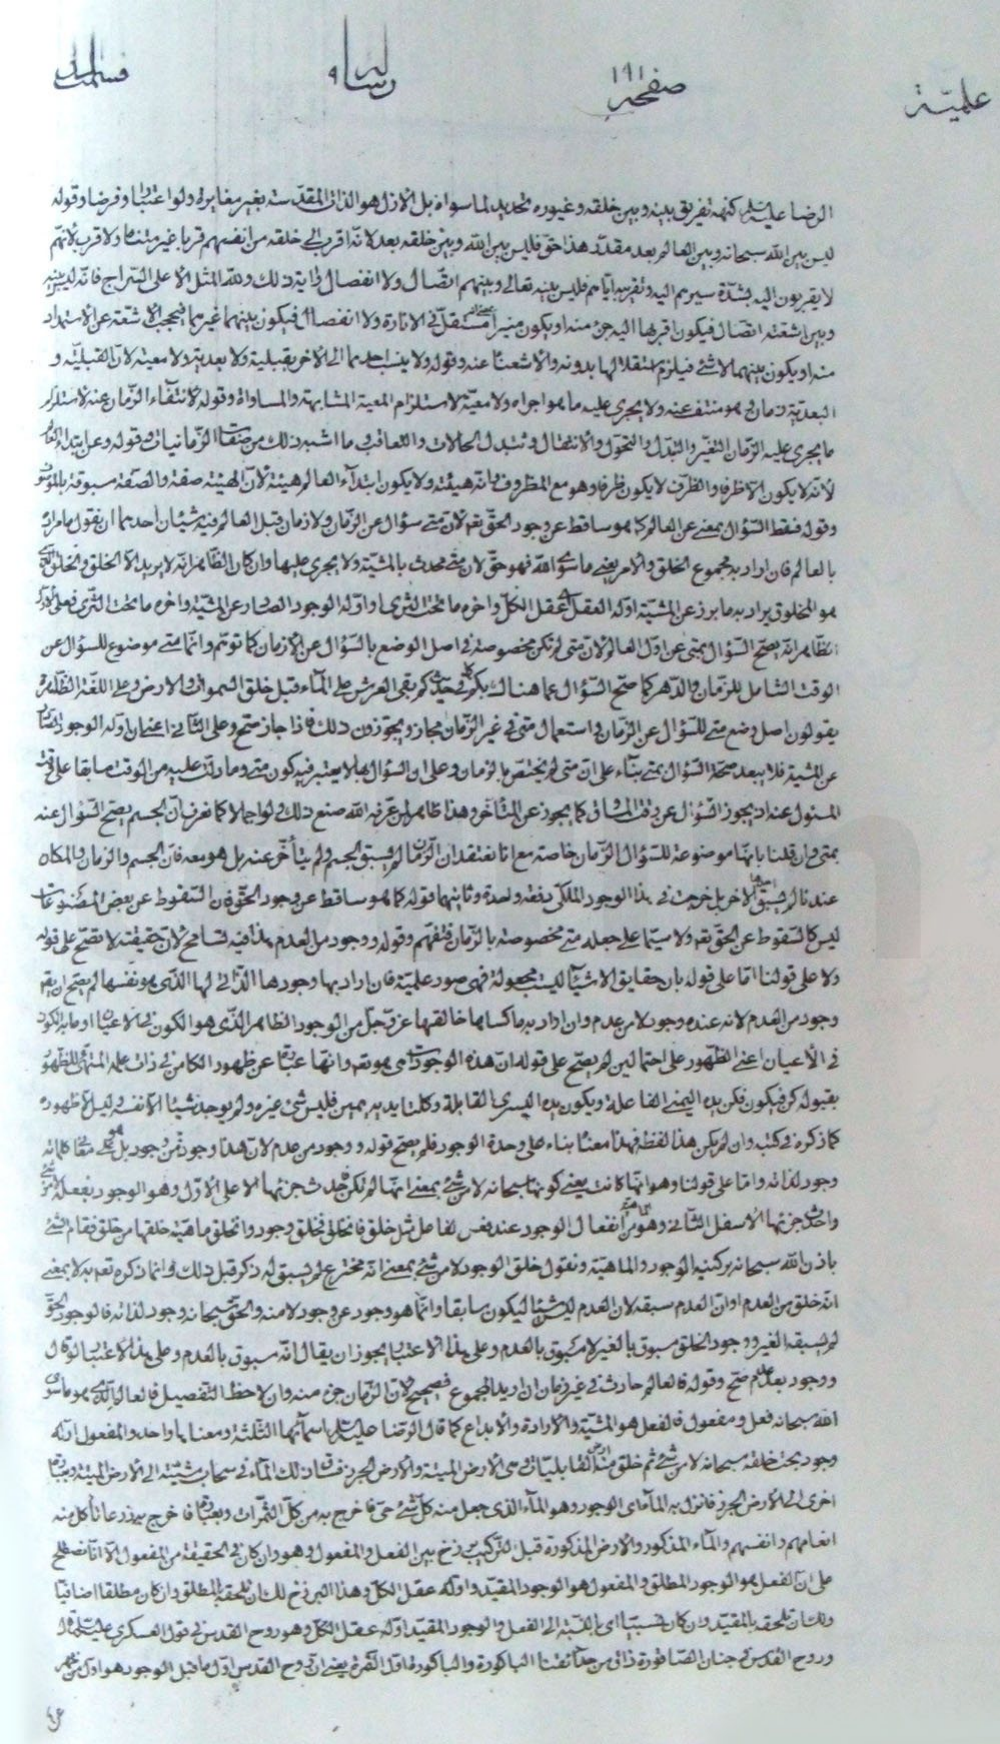 علميّة صفحه ١٩١ رساله ٩
الرضا عليه السلام كنهه تفريق بينه وبين خلقه وغيوره تحديد لما سواه بل الأزل هو الذات المقدّسة بغير مغايرة ولو اعتبارا وفرضا وقوله
ليس بين الله سبحانه وبين العالم بعد مقدّر هذا حق فليس بين الله وبين خلقه بعد لانه اقرب الى خلقه من انفسهم قربا غير متناه ولا قرب لانهم
لا يقربون اليه بشدّة سيرهم اليه وتقريبه اياهم فليس بينه تعالى وبينهم اتصال ولا انفصال وآية ذلك ولله المثل الاعلى السراج فانه ليس بينه
وبين اشعّته اتصال فيكون اقربها اليه جزء منه او يكون منيرا مستقلّ في الانارة ولا انفصال فيكون بينهما غيرهما فيحجب الاشعّة عن الاستمداد
منه او يكون بينهما لا شئ فيلزم استقلالها بدونه والاشعة عنه وقوله ولا ينسب احدهما الى الآخر بقبلية ولا بعدية ولا معية لان القبليّة و
البعديّة زماني هو منتف عنه ولا يجرى عليه ما هو اجراه ولا معيّة لاستلزام المعية المشابهة والمساواة وقوله لانتفاء الزمان عنه لاستلزام
ما يجرى عليه الزمان التغير والتبدّل والتحوّل والانتقال وتبدل الحالات والتعاقب وما اشبه ذلك من صفات الزمانيات وقوله وعن ابتداء العالم
لانه لا يكون الا ظرفا والظرف لا يكون ظرفا وهو مع المظروف فانه هيئته ولا يكون ابتداء العالم هيئة لان الهيئة صفة والصفة مسبوقة بالموصوف
وقوله فقط السؤال بمتى عن العالم كما هو ساقط عن وجود الحق تعالى لان متى سؤال عن الزمان ولا زمان قبل العالم فيه شيئان احدهما ان نقول ما مراده
بالعالم فان اراد به مجموع الخلق والامر يعنى ما سوى الله فهو حق لان متى محدث بالمشيّة ولا يجرى عليها وان كان الظاهر انه لا يريد الا الخلق والخلق الذي
هو المخلوق يراد به ما برز عن المشيّة اوله العقل اى عقل الكلّ وآخره ما تحت الثرى او اوله الوجود الصادر عن المشية وآخره ما تحت الثرى فعلى الاول
الظاهر انه يصحّ السؤال بمتى عن اول العالم لان متى لم تكن مخصوصة في اصل الوضع بالسؤال عن الازمان كما توهّم وانما متى موضوع للسؤال عن
الوقت الشامل للزمان والدهر كما صحّ السؤال عما هنالك بكم في حديث كم بقى العرش على الماء قبل خلق السموات والارض وعلى اللغة الظاهرة
يقولون اصل وضع متى للسؤال عن الزمان واستعمال متى في غير الزمان مجاز ويجوزون ذلك فاذا جاز صحّ وعلى الثاني اعنى ان اوله الوجود الصادر
عن المشية فلا يبعد صحة السؤال بمتى بناء على ان متى لم يختص بالزمان وعلى ان السؤال بها لا يعتبر فيه كون متى وما دلّت عليه من الوقت سابقا على وقت
المسئول عنه اذ يجوز السؤال عن وقت المساوق كما يجوز عن المتأخر وهذا ظاهر لمن عرفه الله صنع ذلك ولو اجمالا كما نعرف ان الجسم يصح السؤال عنه
بمتى وان قلنا بانها موضوعة للسؤال الزمان خاصة مع انا نعتقد ان الزمان لم يسبق الجسم ولم يتأخر عنه بل هو معه فان الجسم والزمان والمكان
عندنا لم يسبق احدها الآخر بل خرجت في هذا الوجود الملكى دفعة واحدة وثانيهما قوله كما هو ساقط عن وجود الحق فان السقوط عن بعض المصنوعات
ليس كالسقوط عن الحق تعالى ولا سيّما على جعله متى مخصوصة بالزمان فتفهم وقوله ووجود من العدم هذا فيه تسامح لان حقيقته لا تصحّ على قوله
ولا على قولنا امّا على قوله بان حقايق الاشياء ليست مجعولة فهى صور علميّة فان اراد بها وجودها الذاتي لها الذى هو نفسها لم يصحّ ان يقع
وجود من العدم لانه عنده وجود لا من عدم وان اراد به ما كساها خالقها عزّ وجلّ من الوجود الظاهر الذى هو الكون في الاعيان او ما به الكون
في الاعيان اعنى الظهور على احتمالين لم يصحّ على قوله ان هذه الوجودات هى هو تعالى وانها عبارة عن ظهور الكامن في ذات علمه المتهيئ للظهور
بقبوله كن فيكون فكن يده اليمنى الفاعلة ويكون يده اليسرى القابلة وكلتا يديه يمين فليس شئ غيره ولم يوجد شيئا الا نفسه وليس الا ظهوره
كما ذكره في كتبه وان لم يكن هذا لفظه فهذا معناه بناء على وحدة الوجود فلم يصحّ قوله ووجود من عدم لان هذا وجود من وجود بل هو على معانى كلماته
وجود لذاته وامّا على قولنا وهو انها كانت يعنى كونها سبحانه لا من شئ بمعنى انها لم تكن فاحدث جزئها الاعلى الاول وهو الوجود بفعله لا من شئ
واحدث جزئها الاسفل الثاني وهو انفعال الوجود عند نفس الفاعل مثل خلق فانخلق فخلق وجود وانخلق ماهية خلقها من خلق فقام الشئ
باذن الله سبحانه بركنيه الوجود والماهيّة ونقول خلق الوجود لا من شئ بمعنى انه مخترع لم يسبق له ذكر قبل ذلك وانما ذكره تعالى به لا بمعنى
انه خلق من العدم او ان العدم سبقه لان العدم ليس شيئا ليكون سابقا وانما هو وجود عن وجود لا منه والحق سبحانه وجود لذاته فالوجود الحق
لم يسبقه الغير ووجود الخلق مسبوق بالغير لا مسبوق بالعدم وعلى هذا الاعتبار يجوز ان يقال انه مسبوق بالعدم وعلى هذا الاعتبار لو قال
ووجود بعد عدم صحّ وقوله فالعالم حادث في غير زمان ان اريد المجموع فصحيح لان الزمان جزء منه وان لاحظ التفصيل فالعالم الذى هو ما سوى
الله سبحانه فعل ومفعول فالفعل هو المشيّة والارادة والابداع كما قال الرضا عليه السلام اسمائها الثلثة ومعناها واحد والمفعول اوله
وجود بحت خلقه سبحانه لا من شئ ثم خلق منه ارض القابليات وهى الارض الميتة والارض الجرز فساق ذلك الماء في سحاب مشيّته الى الارض الميتة وبعبارة
اخرى الى الارض الجرز فانزل به الماء اى الوجود وهو الماء الذى جعل منه كلّ شئ حى فاخرج به من كلّ الثمرات وبعبارة فاخرج به زرعا تأكل منه
انعامهم وانفسهم والماء المذكور والارض المذكورة قبل التركيب برزخ بين الفعل والمفعول وهو وان كان في الحقيقة من المفعول الا انا نصطلح
على ان الفعل هو الوجود المطلق والمفعول هو الوجود المقيد واوله عقل الكلّ وهذا البرزخ لك ان تلحقه بالمطلق وان كان مطلقا اضافيا
ولك ان تلحقه بالمقيد وان كان نسبيا اى بالنسبة الى الفعل والوجود المقيد اوله عقل الكلّ وهو روح القدس في قول العسكرى عليه السلام قال
وروح القدس في جنان الصاقورة ذاق من حدائقنا الباكورة والباكورة اول الثمرة يعنى ان روح القدس اول ما قبل الوجود هو اول من